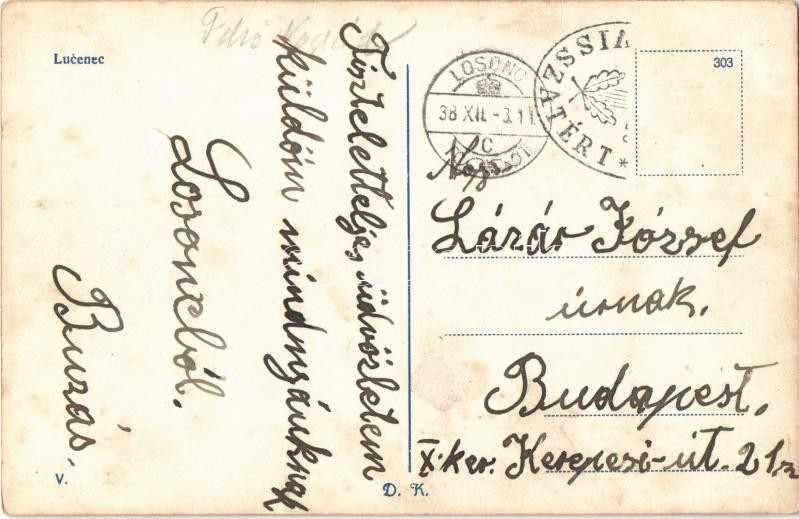 Lučenec
Tiszteletteljes üdvözletem
küldöm mindnyájuknak
Losoncból.
Buzás.
V.
D. K.
303
LOSONC
38 XII. -3. 11
C
VISSZA
TÉRT *
Lázár József
úrnak.
Budapest.
X. ker. Kerepesi-út. 21.